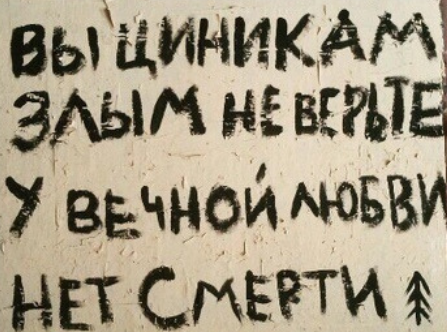 ВЫ ЦИНИКАМ
ЗЛЫМ НЕ ВЕРЬТЕ
У ВЕЧНОЙ ЛЮБВИ
НЕТ СМЕРТИ